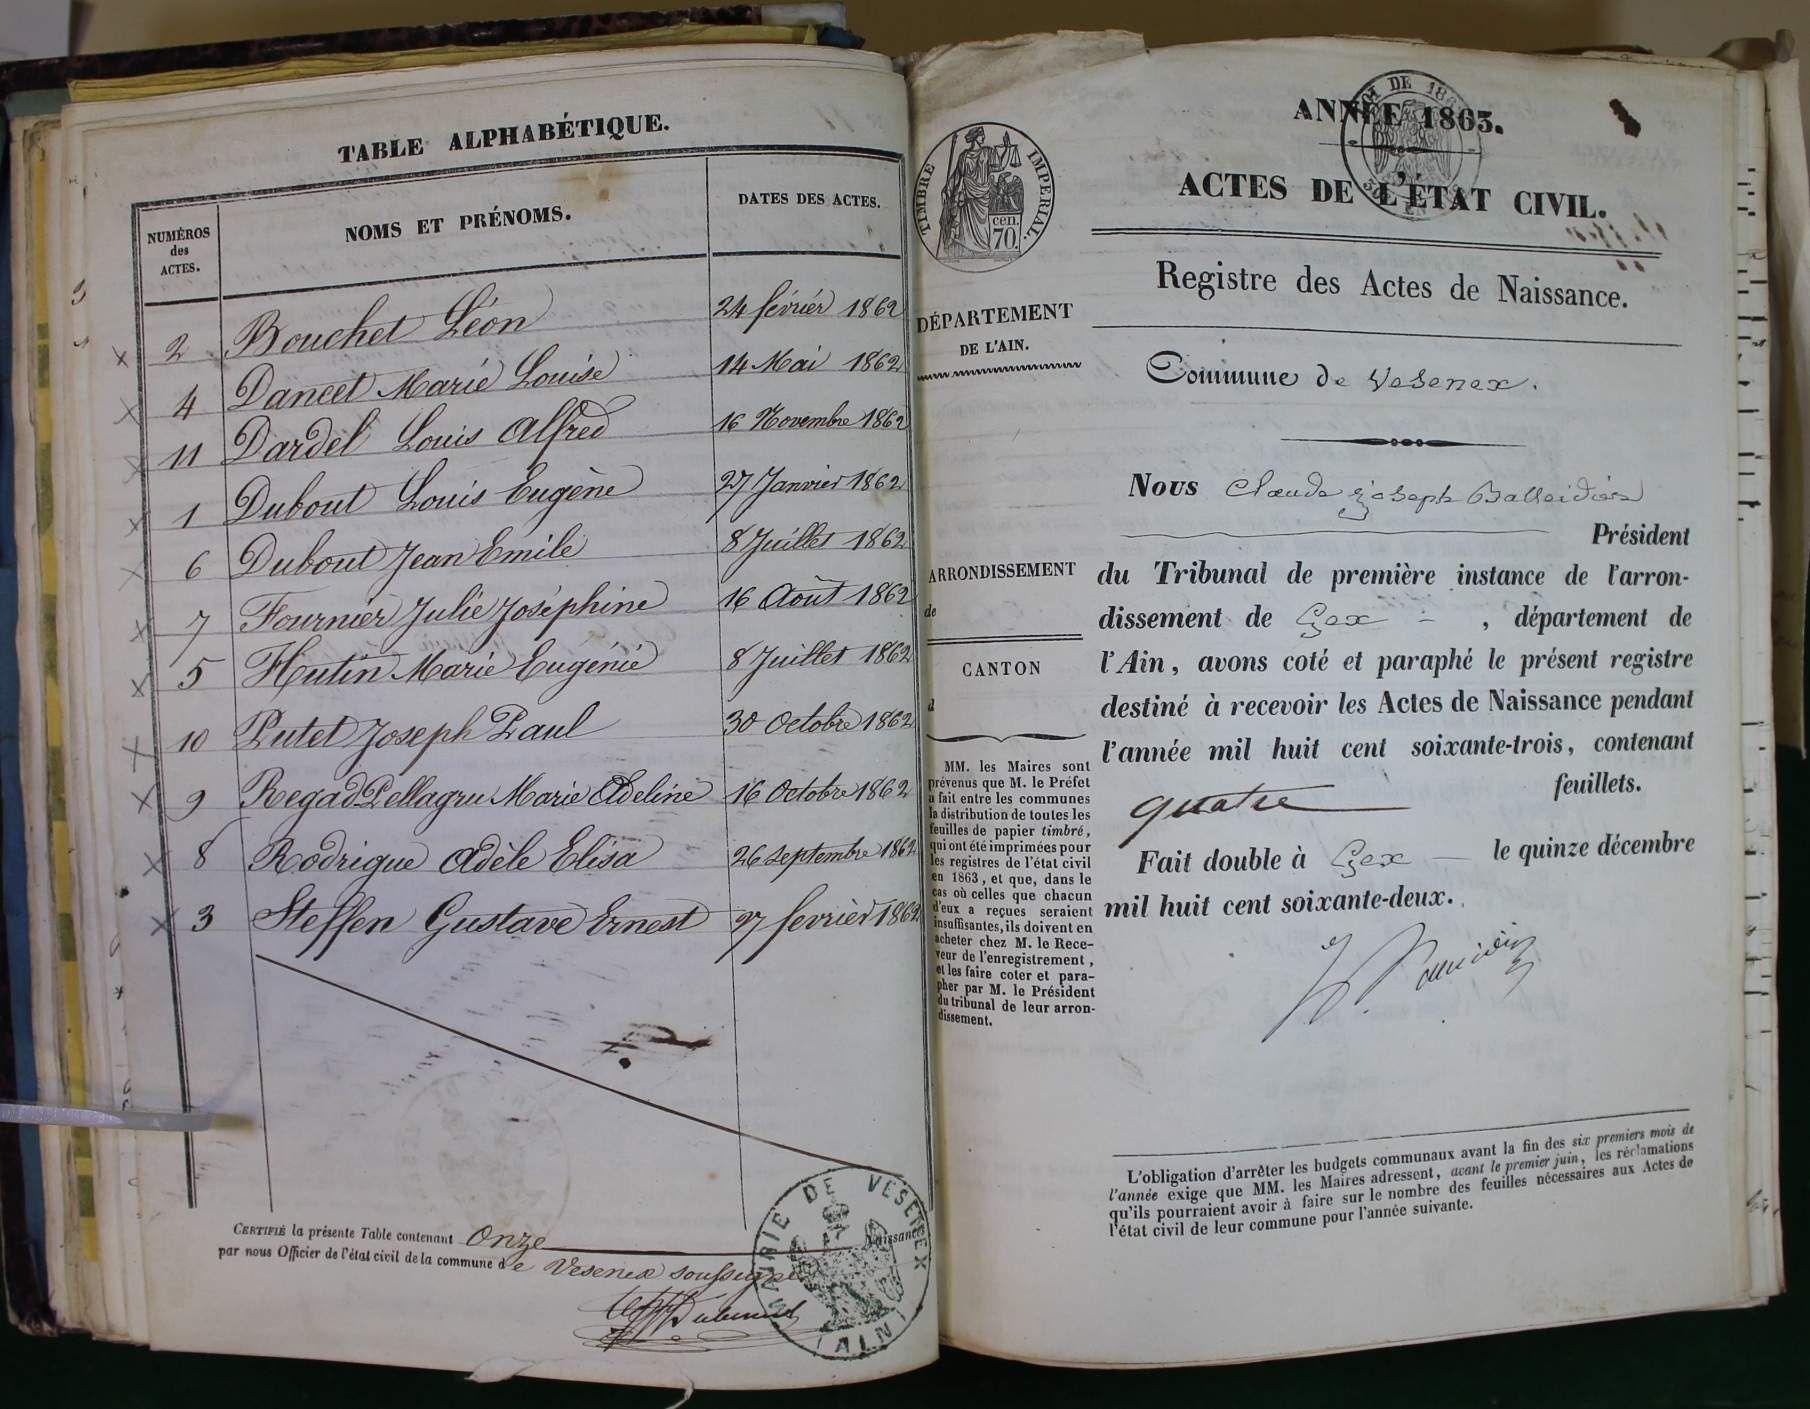 TABLE ALPHABÉTIQUE.
NUMÉROS
des
ACTES.
NOMS ET PRÉNOMS.
DATES DES ACTES.
2 Bouchet Léon 24 février 1862
4 Dancet Marie Louise 14 Mai 1862
11 Dardel Louis Alfred 16 Novembre 1862
1 Dubout Louis Eugène 27 Janvier 1862
6 Dubout Jean Emile 8 Juillet 1862
7 Fournier Julie Joséphine 16 Août 1862
5 Hutin Marie Eugénie 8 Juillet 1862
10 Putet Joseph Paul 30 Octobre 1862
9 Regad Pellagru Marie Adeline 16 Octobre 1862
8 Rodrigue Adèle Elisa 26 Septembre 1862
3 Steffen Gustave Ernest 27 fevrier 1862
CERTIFIÉ la présente Table contenant Onze Naissance
par nous Officier de l'état civil de la commune de Vesenex soussigné
MAIRIE DE VESENEX
(AIN)
TIMBRE IMPERIAL.
cen.
70.
DÉPARTEMENT
DE L'AIN.
ARRONDISSEMENT
de
CANTON
d
MM. les Maires sont
prévenus que M. le Préfet
a fait entre les communes
la distribution de toutes les
feuilles de papier timbré,
qui ont été imprimées pour
les registres de l'état civil
en 1863, et que, dans le
cas où celles que chacun
d'eux a reçues seraient
insuffisantes, ils doivent en
acheter chez M. le Rece-
veur de l'enregistrement,
et les faire coter et para-
pher par M. le Président
du tribunal de leur arron-
dissement.
ANNÉE 1863.
ACTES DE L'ÉTAT CIVIL.
Registre des Actes de Naissance.
Commune de Vesenex.
Nous Claude Joseph Balleidier
Président
du Tribunal de première instance de l'arron-
dissement de Gex , département de
l'Ain, avons coté et paraphé le présent registre
destiné à recevoir les Actes de Naissance pendant
l'année mil huit cent soixante-trois, contenant
quatre feuillets.
Fait double à Gex le quinze décembre
mil huit cent soixante-deux.
L'obligation d'arrêter les budgets communaux avant la fin des six premiers mois de
l'année exige que MM. les Maires adressent, avant le premier juin, les réclamations
qu'ils pourraient avoir à faire sur le nombre des feuilles nécessaires aux Actes de
l'état civil de leur commune pour l'année suivante.